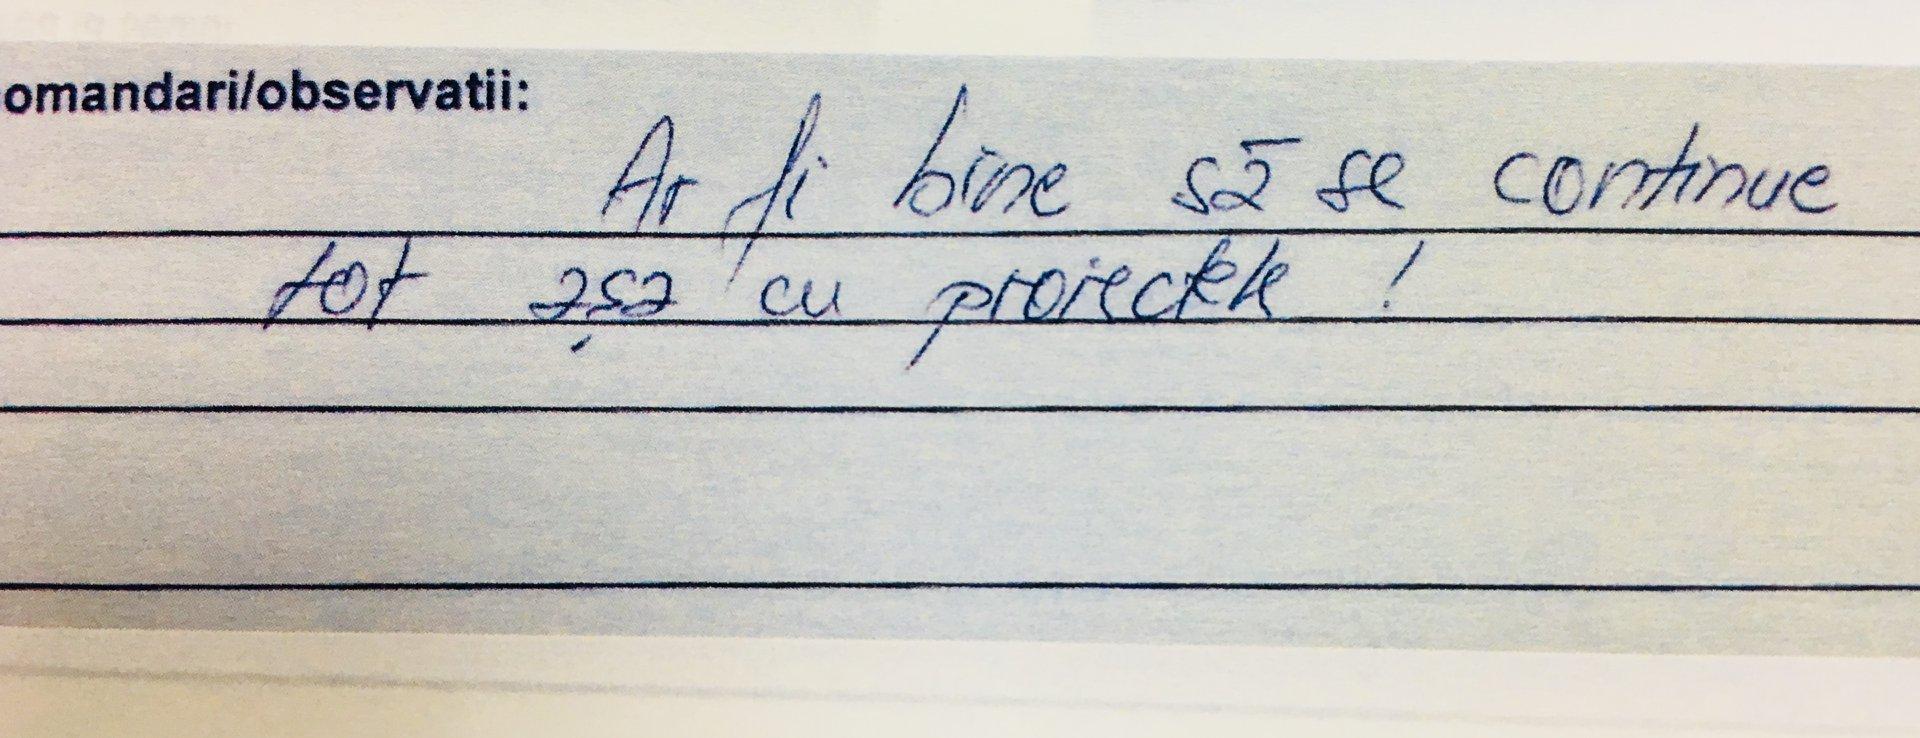 omandari/observatii:
Ar fi bine să se continue
tot așa cu proiectele !